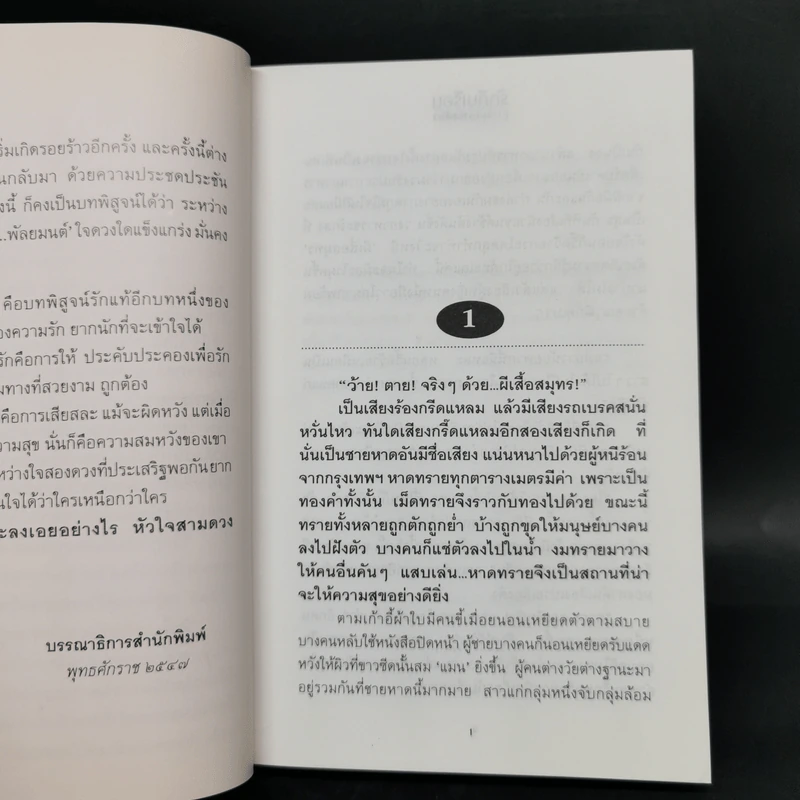 ริ่มเกิดรอยร้าวอีกครั้ง และครั้งนี้ต่าง
นกลับมา ด้วยความประชดประชัน
งนี้ ก็คงเป็นบทพิสูจน์ได้ว่า ระหว่าง
...พัลยมนต์' ใจดวงใดแข็งแกร่ง มั่นคง
คือบทพิสูจน์รักแท้อีกบทหนึ่งของ
องความรัก ยากนักที่จะเข้าใจได้
รักคือการให้ ประคับประคองเพื่อรัก
มทางที่สวยงาม ถูกต้อง
คือการเสียสละ แม้จะผิดหวัง แต่เมื่อ
วามสุข นั่นก็คือความสมหวังของเขา
หว่างใจสองดวงที่ประเสริฐพอกันยาก
นใจได้ว่าใครเหนือกว่าใคร
ะลงเอยอย่างไร หัวใจสามดวง
บรรณาธิการสำนักพิมพ์
พุทธศักราช ๒๕๔๗
1
“ว้าย! ตาย! จริงๆ ด้วย...ผีเสื้อสมุทร!”
เป็นเสียงร้องกรีดแหลม แล้วมีเสียงรถเบรคสนั่น
หวั่นไหว ทันใดเสียงกรี๊ดแหลมอีกสองเสียงก็เกิด ที่
นั่นเป็นชายหาดอันมีชื่อเสียง แน่นหนาไปด้วยผู้หนีร้อน
จากกรุงเทพฯ หาดทรายทุกตารางเมตรมีค่า เพราะเป็น
ทองคำทั้งนั้น เม็ดทรายจึงราวกับทองไปด้วย ขณะนี้
ทรายทั้งหลายถูกตักถูกย่ำ บ้างถูกขุดให้มนุษย์บางคน
ลงไปฝังตัว บางคนก็แช่ตัวลงไปในน้ำ งมทรายมาวาง
ให้คนอื่นคันๆ แสบเล่น...หาดทรายจึงเป็นสถานที่น่า
จะให้ความสุขอย่างดียิ่ง
ตามเก้าอี้ผ้าใบมีคนขี้เมื่อยนอนเหยียดตัวตามสบาย
บางคนหลับใช้หนังสือปิดหน้า ผู้ชายบางคนก็นอนเหยียดรับแดด
หวังให้ผิวที่ขาวซีดนั้นสม ‘แมน’ ยิ่งขึ้น ผู้คนต่างวัยต่างฐานะมา
อยู่รวมกันที่ชายหาดนี้มากมาย สาวแก่กลุ่มหนึ่งจับกลุ่มล้อม
1